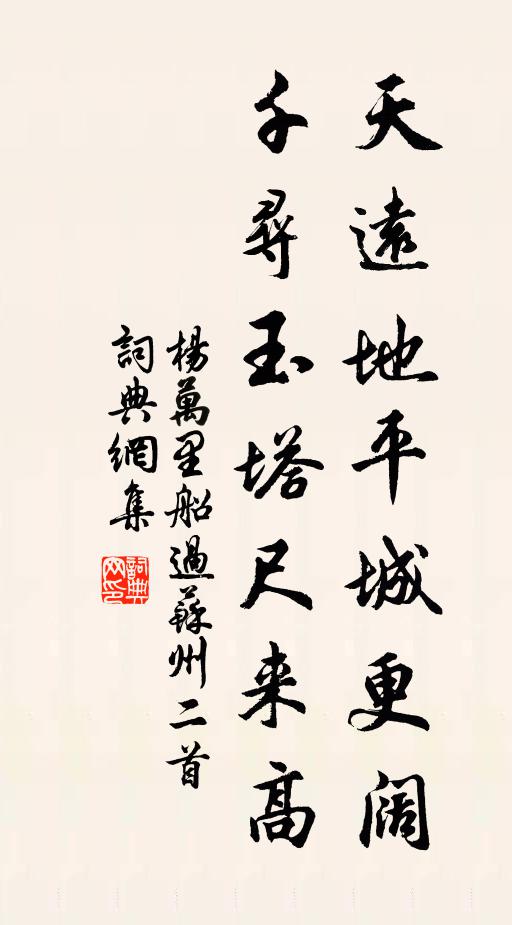 天遠地平城更阔
千尋玉塔尺来高
楊萬里船過蘇州二首
詞典網集
詞典网印